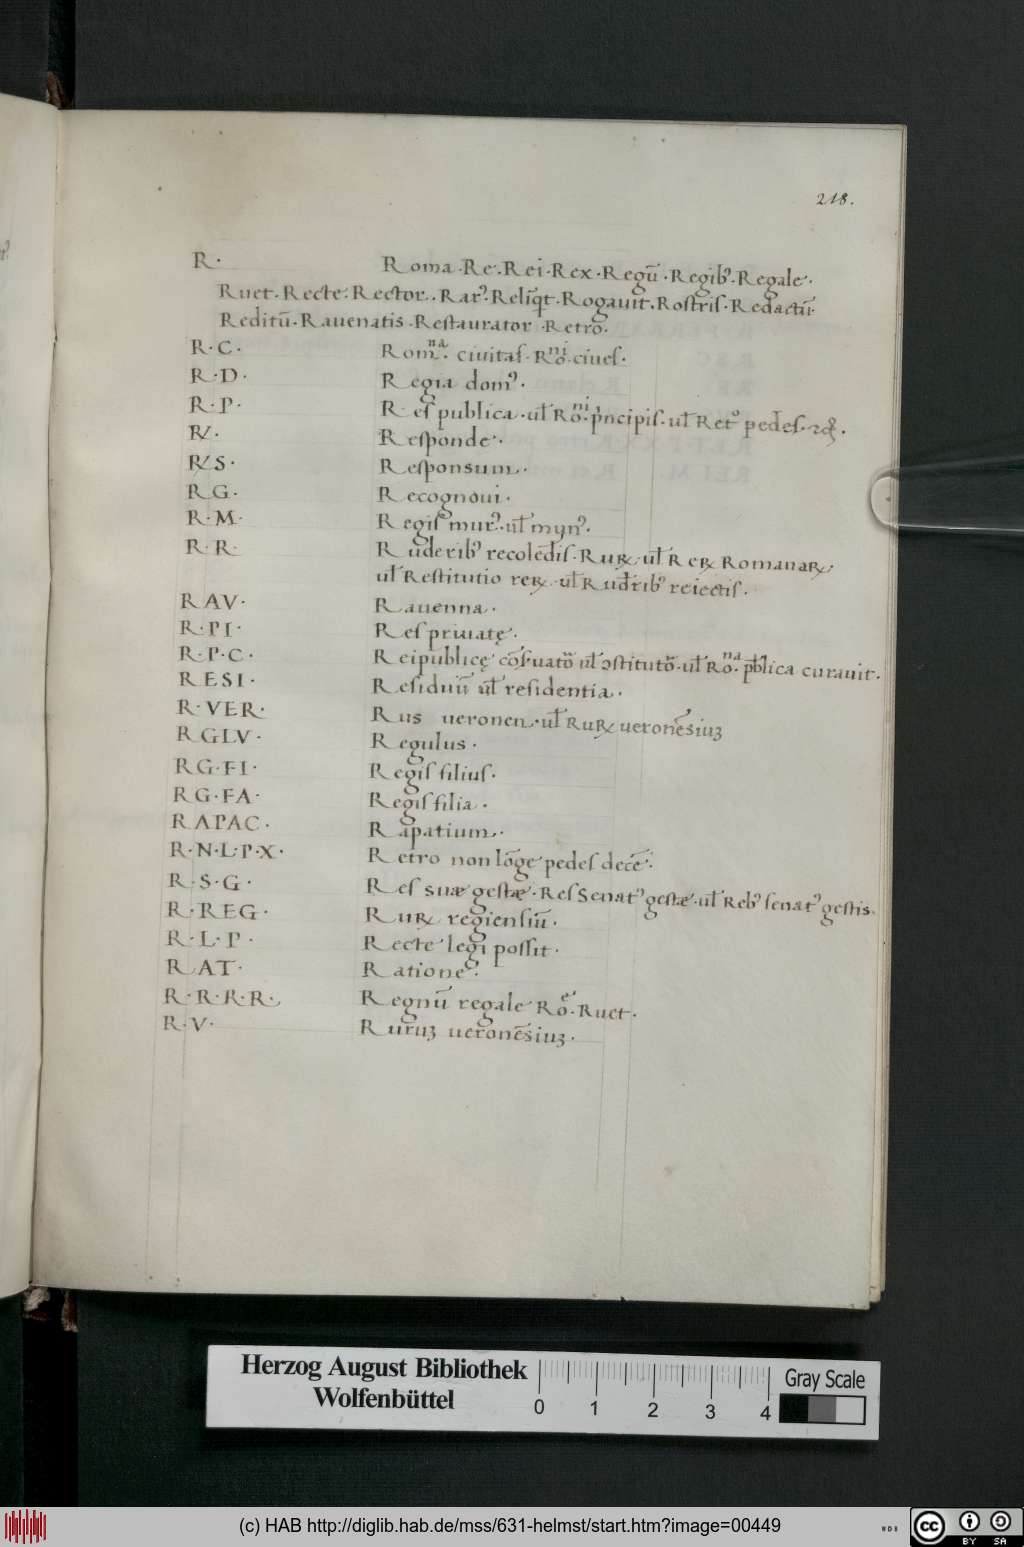 218.
R· Roma·Re·Rei·Rex·Regū·Regibꝰ·Regale·
Ruet·Recte·Rector·Rarꝰ·Reliq̄t·Rogauit·Roſtriſ·Redactū·
Reditū·Rauenatis·Reſtaurator·Retro·
R·C· Romͣⁿᵃ· ciuitaſ·Roⁿⁱ·ciueſ·
R·D· Regia domꝰ·
R·P· Reſ publica·ul̄ Ro·ⁿⁱ pͥncipiſ·ul̄ Retꝰ pedeſ·
R/· Reſponde·
R/S· Reſponsum·
RG· Recognoui·
R·M· Regiſ murꝰ·ul̄ mynꝰ·
R·R· Ruderibꝰ recoled̄iſ·Ruꝝ·ul̄ Reꝝ Romanaꝝ·
ul̄ Reſtitutio reꝝ·ul̄ Rud̄ribꝰ reiectiſ·
RAV· Rauenna·
R·PI· Reſ priuatę·
R·P·C· Reipublicę cōſuato᷑ ul̄ ꝯſtituto᷑·ul̄ Ro·ⁿᵃ pb̄lica curauit·
RESI· Reſiduū ul̄ reſidentia·
R·VER· Rus ueronen·ul̄ Ruꝝ ueronēsiuꝫ
RGLV· Regulus·
RG·FI· Regiſ filiuſ·
RG·FA· Regiſ filia·
RAPAC· Rapatium·
R·N·L·P·X· Retro non lōge pedeſ decē·
R·S·G· Reſ suæ geſtæ·Reſ Senatꝰ geſtæ·ul̄ Rebꝰ ſenatꝰ geſtis·
R·REG· Ruꝝ regienſiū·
R·L·P· Recte legi poſſit·
RAT· Rationeꝰ·
R·R·R·R· Regnū regale Roᵉ·Ruet·
R·V· Ruruꝫ ueronēsiuꝫ·
Herzog August Bibliothek
Wolfenbüttel
0 1 2 3 4
Gray Scale
(c) HAB http://diglib.hab.de/mss/631-helmst/start.htm?image=00449
WDB
cc BY SA